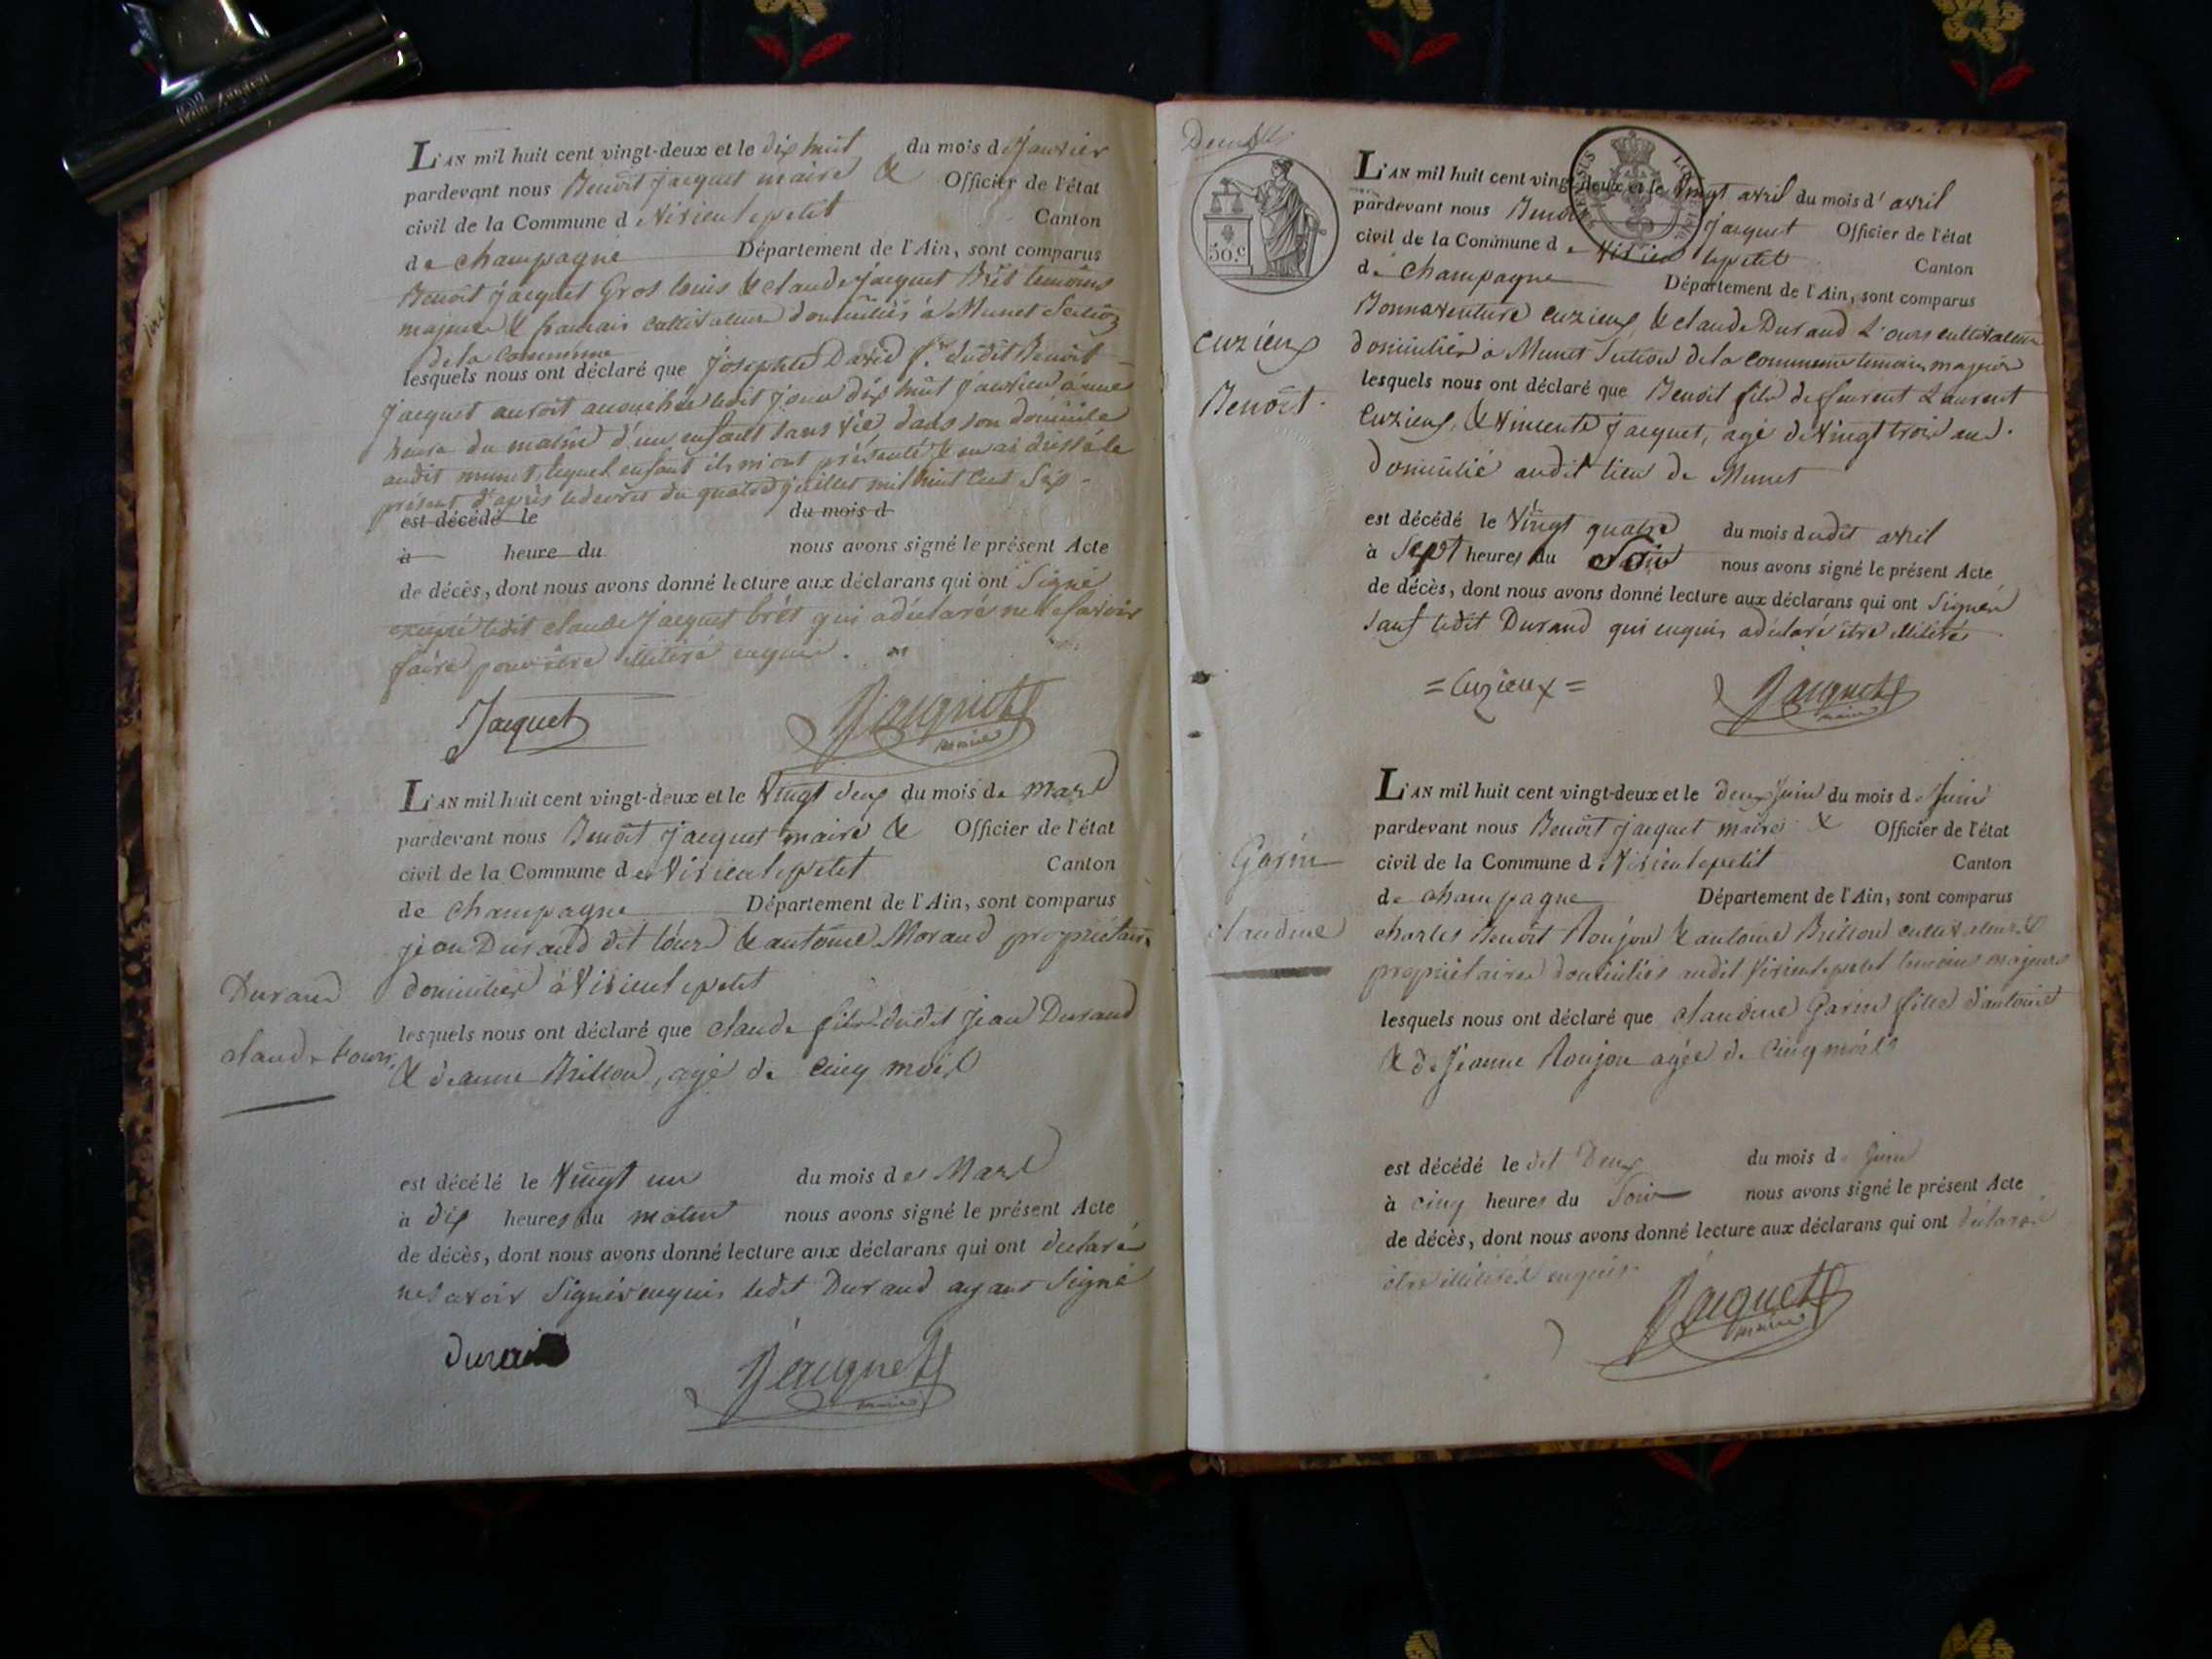 L'AN mil huit cent vingt-deux et le dix huit du mois de Janvier
pardevant nous Benoit Jacquet maire & Officier de l'état
civil de la Commune d Virieu lepetit Canton
de champagne Département de l'Ain, sont comparus
Benoit Jacquet Gros louis & claude Jacquet Brêt temoins
majeurs & francais cultivateurs domiciliés à Munet Section
de la Commune
lesquels nous ont déclaré que Josephte David f.e dudit Benoit
Jacquet auroit accouchée ledit jour dix huit Janvier à une
heure du matin d'un enfant sans vie dans son domicile
audit munet, lequel enfant ils m'ont présenté & en ai dressé le
présent d'après le decret du quatre juillet mil huit cent Six
est décédé le du mois d
à heure du nous avons signé le présent Acte
de décès, dont nous avons donné lecture aux déclarans qui ont Signé
excepté ledit claude Jacquet brêt qui a déclaré ne le savoir
faire pour être illitéré enquis.
Jacquet Jacquet
maire
L'AN mil huit cent vingt-deux et le Vingt deux du mois de Mars
pardevant nous Benoit Jacquet maire & Officier de l'état
civil de la Commune de Virieu lepetit Canton
de champagne Département de l'Ain, sont comparus
jean Durand dit l'ours & antoine Morand propriétaires
domiciliés à Virieu lepetit
Durand
lesquels nous ont déclaré que claude fils dudit Jean Durand
claude l'ours
& deanne Brillon, agé de cinq mois
est décédé le Vingt un du mois de Mars
à dix heures du matin nous avons signé le présent Acte
de décès, dont nous avons donné lecture aux déclarans qui ont declaré
ne Savoir Signer enquis ledit Durand ayant Signé
durand Jacquet
maire
50.c
L'AN mil huit cent vingt-deux et le vingt avril du mois d'avril
pardevant nous Benoit Jacquet Officier de l'état
civil de la Commune de Virieu lepetit Canton
de Champagne Département de l'Ain, sont comparus
Bonnaventure Cuzieux & claude Durand L'ours cultivateurs
Cuzieux
domiciliés à Munet Section de la commune temoins majeurs
Benoit
lesquels nous ont déclaré que Benoit fils de Laurent
Cuzieux, & Vincente Jacquet, agé de Vingt trois ans
domicilié audit lieu de Munet
est décédé le Vingt quatre du mois dudit avril
à Sept heures du Soir nous avons signé le présent Acte
de décès, dont nous avons donné lecture aux déclarans qui ont Signés
Sauf ledit Durand qui enquis a déclaré être illitéré
= Cuzieux = Jacquet
maire
L'AN mil huit cent vingt-deux et le deux Juin du mois de Juin
pardevant nous Benoit Jacquet maire & Officier de l'état
Garin
civil de la Commune d Virieu lepetit Canton
de champagne Département de l'Ain, sont comparus
claudine
charles Benoit Roujon & antoine Brillon cultivateurs &
propriétaires domiciliés audit Virieu lepetit temoins majeurs
lesquels nous ont déclaré que claudine Garin fille d'antoine
& de Jeanne Roujon agée de Cinq mois
est décédé le dit Deux du mois de Juin
à cinq heures du Soir nous avons signé le présent Acte
de décès, dont nous avons donné lecture aux déclarans qui ont déclaré
être illitérés enquis
Jacquet
maire